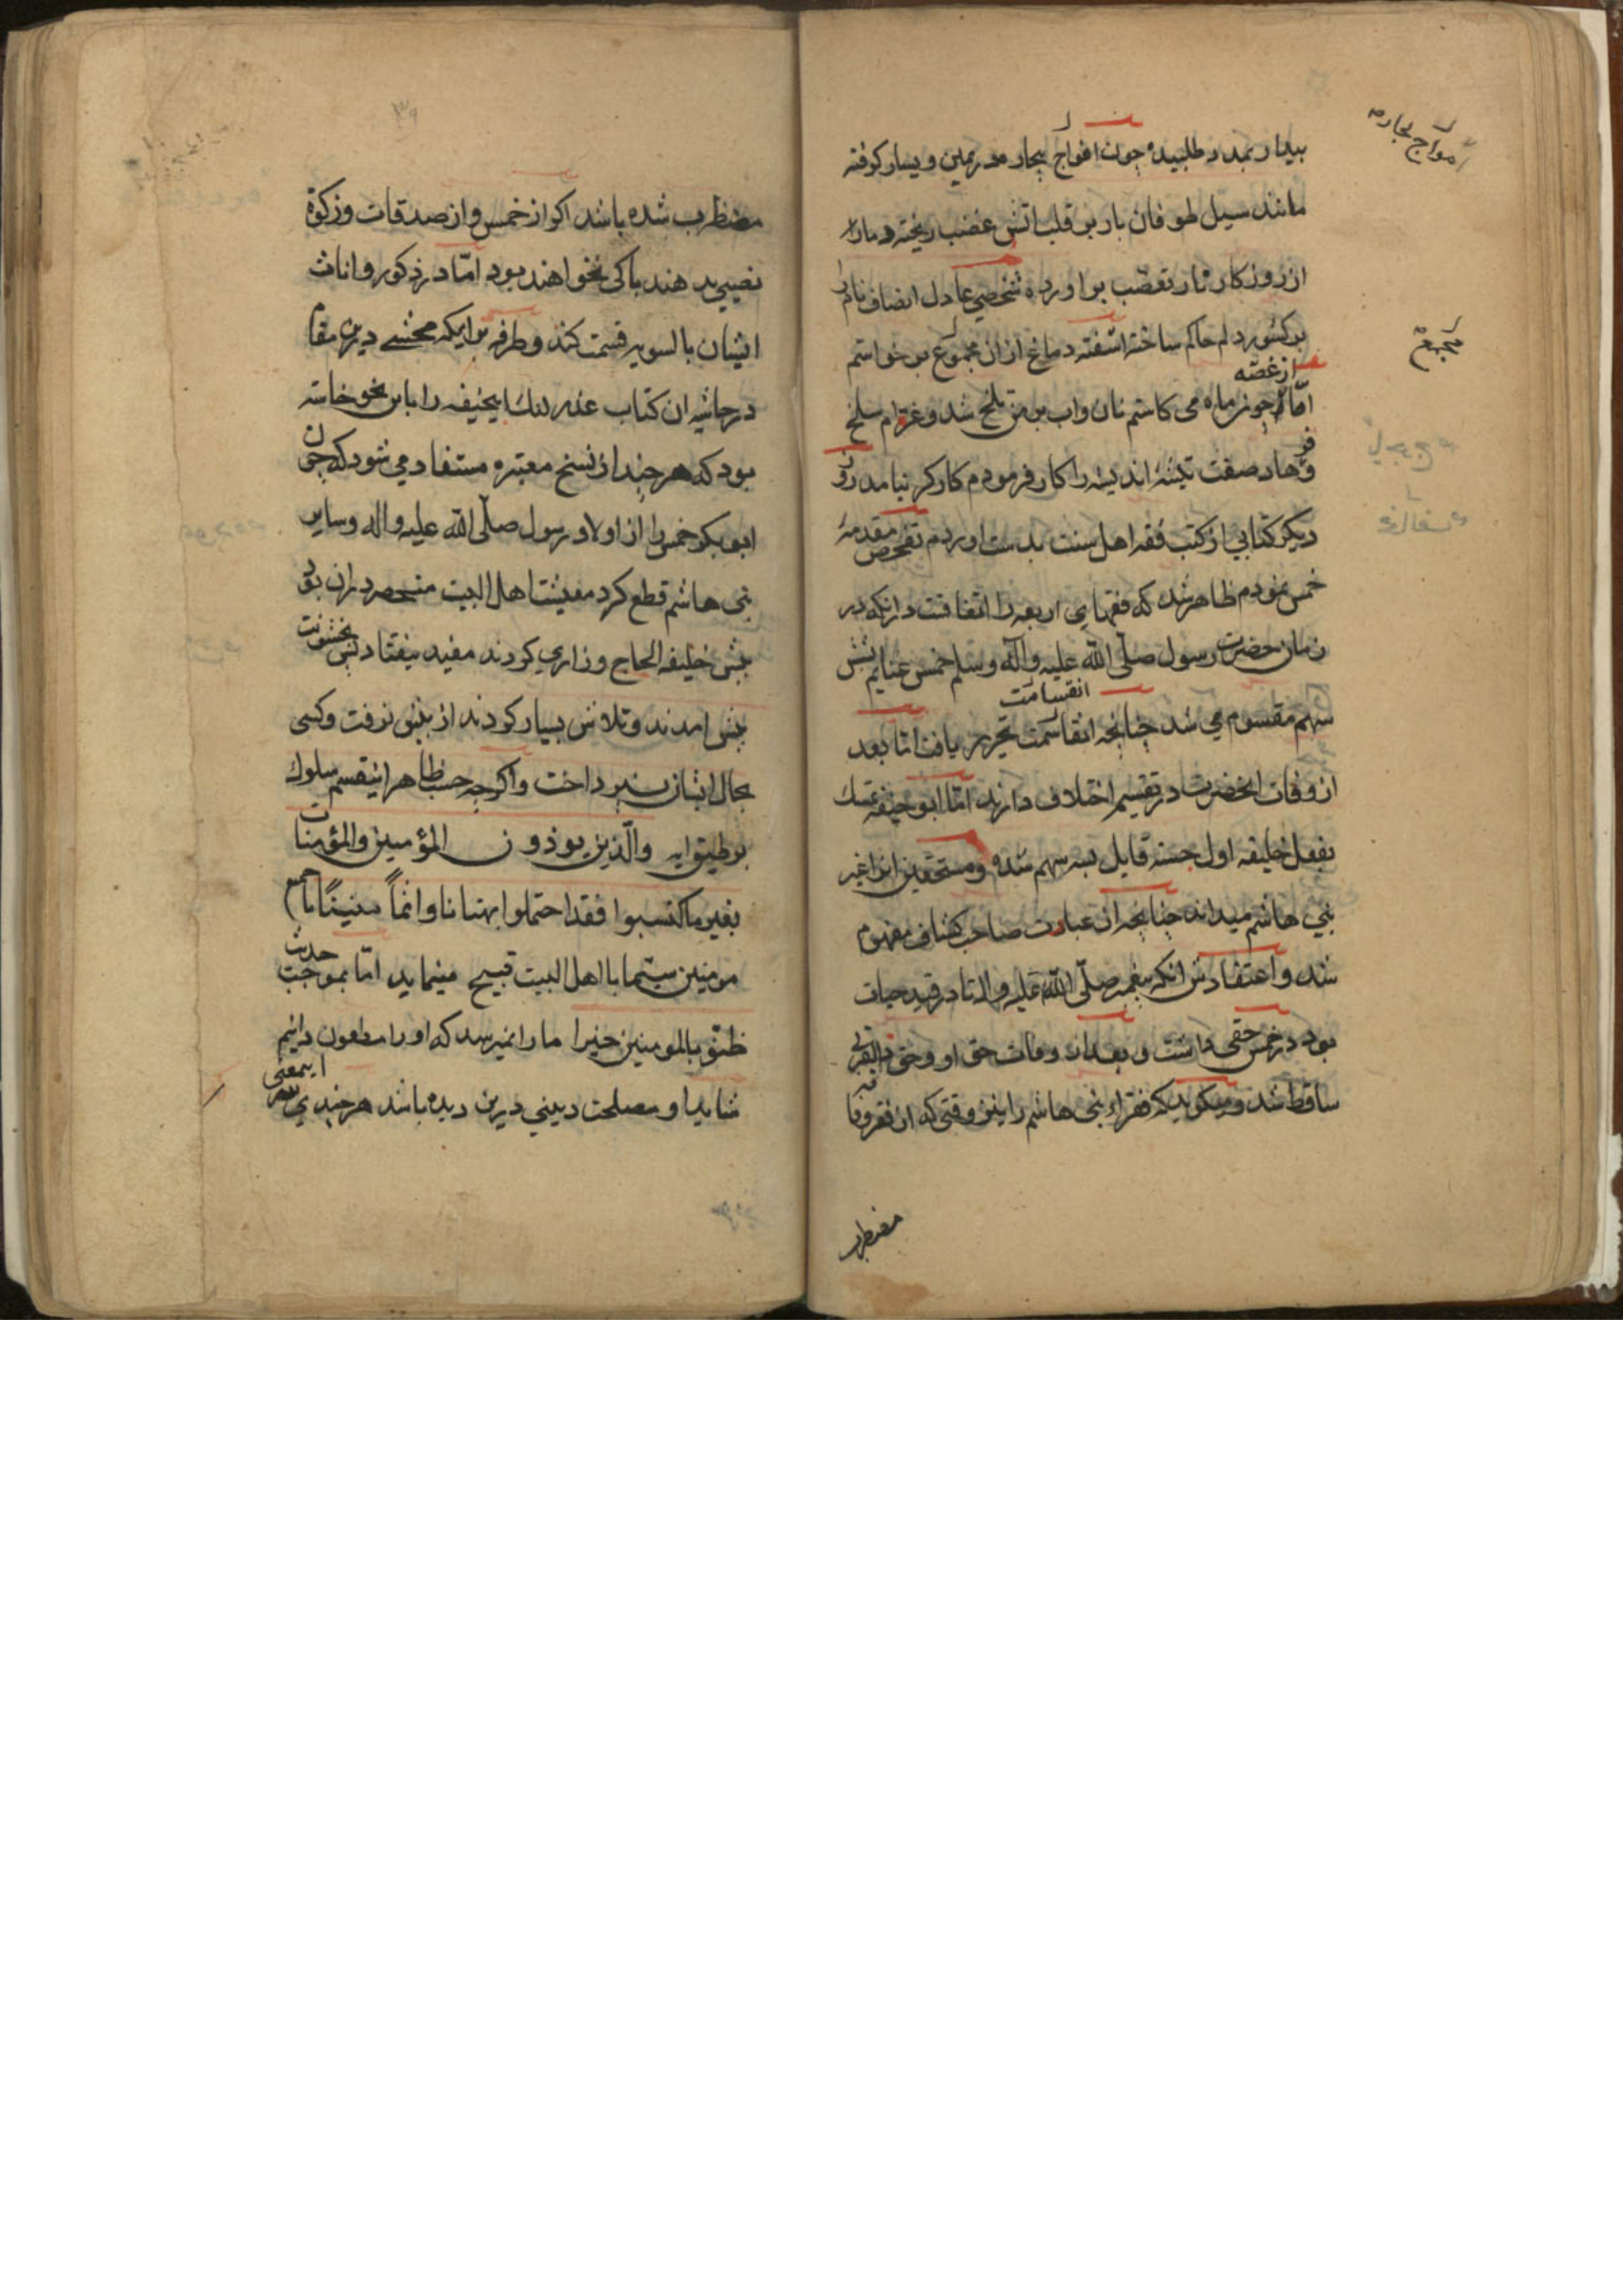 بیدار بمدد طلبیده چون افواج بحار مدر یمین و یسار کوفته
امواج بحاره
مانند سیل طوفان بار بر قلب آتش غضب ریخته دمار
از روزکار تعصب براورده شخصی عادل انصاف نام را
بر کشور دلم حاکم ساخته اشفته دماغ ازان مجموع بر خواستم
مجمع
از غصه
امّا چون ماه می کاستم نان و اب بر من تلخ شد و غرّه ام سلخ
فرهاد صفت تیشهٔ اندیشه را کار فرمودم کارکر نیامد روز
دیکر کتابی از کتب فقه اهل سنت بدست اوردم تفحص مقدمهٔ
خمس نمودم ظاهر شد که فقهای اربعه را اتفاقست درانکه در
زمان حضرت رسول صلّی الله علیه وآله وسلم خمس غنایم بشش
انقسامت
سهم مقسوم می شد چنانچه انقاسمت تحریر یافت امّا بعد
از وفات انحضرت در تقسیم اختلاف دارند امّا ابو حنیفه تمسک
بفعل خلیفه اول جسته قایل بسه سهم شده و مستحقین انرا غیر
بنی هاشم میداند چنانچه از عبارت صاحب کشاف مفهوم
شد و اعتقادش انکه پیغمبر صلّی الله علیه واله تا در قید حیات
بود در خمس حقی داشت و بعد از وفات حق او و حق ذالقربی
ساقط شد و میکوید که فقراء بنی هاشم را نیز وقتی که از فقر و فاقه
مضطرب
۳۹
مضطرب شده باشد اکر از خمس و از صدقات و زکوة
نصیبی بدهند باکی نخواهند بود امّا در ذکور و اناث
ایشان بالسویه قسمت کند و طرفه تر اینکه محشی درین مقام
در حاشیه ان کتاب عذر لنک ابیحنیفه را باین نحو خاسته
بود که هر چند از نسخ معتبره مستفاد می شود که چون
ابو بکر خمس را از اولاد رسول صلّی الله علیه واله وسایر
بنی هاشم قطع کرد معیشت اهل البیت منحصر دران بود
پیش خلیفه الحاح و زاری کردند مفید نیفتاد پس بخشونت
پیش امدند و تلاش بسیار کردند از پیش نرفت وکسی
بحال ایشان نپرداخت و اکرچه حسب ظاهر اینقسم سلوک
بر طبق ایه والّذین یوذون المؤمنین والمؤمنات
بغیر ما کتسبوا فقد احتملوا بهتانا واثماً مبیناً با جمیع
مومنین سیّما با اهل البیت قبیح مینماید امّا بموجب حدیث
ظنّوا بالمومنین خیرا ما را نمیرسد که او را مطعون دانیم
شاید او مصلحت دینی درین دیده باشد هر چند پی بسر
اینمعنی